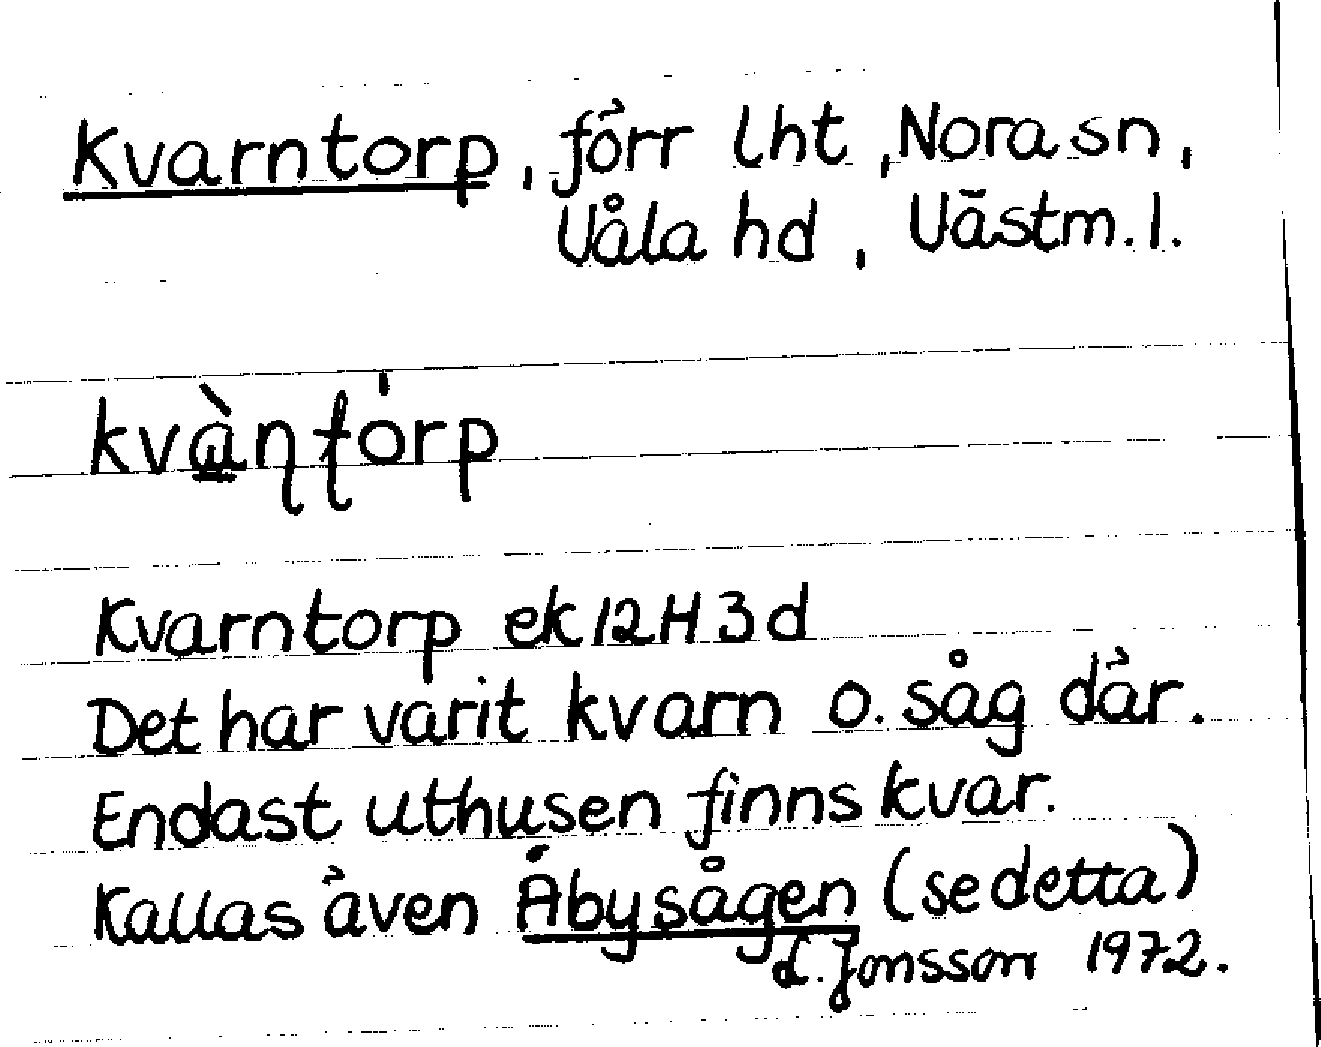 Kvarntorp, förr lht, Nora sn,
Våla hd, Västm. l.
kvàn̨ţórp
Kvarntorp ek 12H3d
Det har varit kvarn o. såg där.
Endast uthusen finns kvar.
Kallas även Åbysågen (se detta)
L. Jonsson 1972.